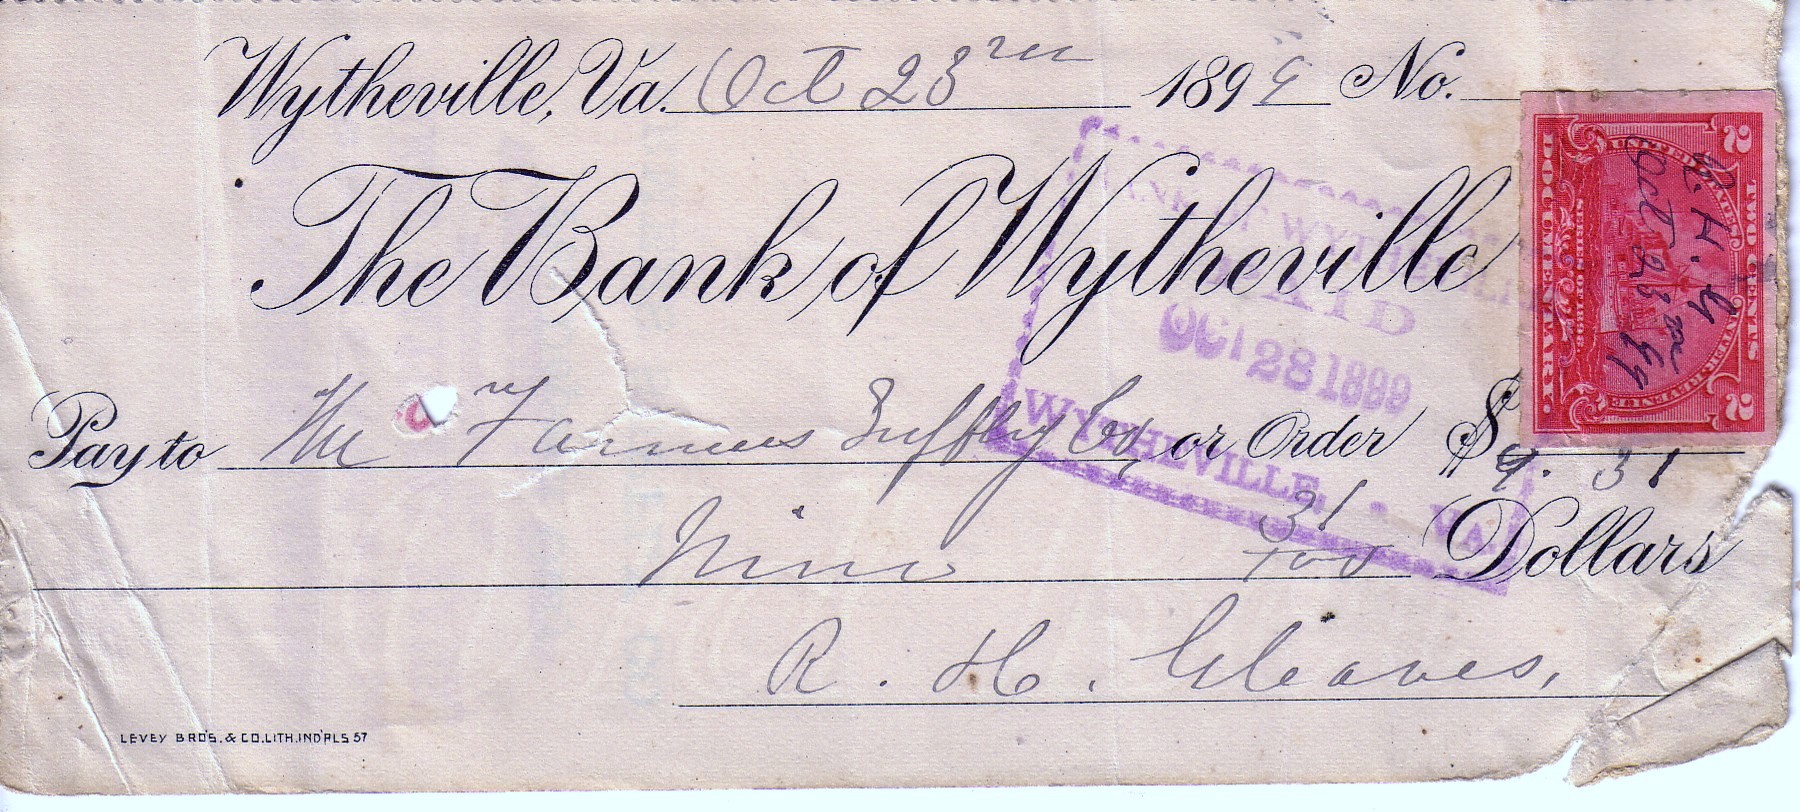 Wytheville, Va. Oct 23rd 1899 No.
The Bank of Wytheville
Pay to The Farmers Supply Co, or Order $9.31
Nine 31/100 Dollars
R. H. Gleaves,
LEVEY BRO'S. & CO. LITH. IND'PLS 57
PAID
OCT 28 1899
WYTHEVILLE, VA.
UNITED STATES INTER. REVENUE
2 TWO CENTS 2
DOCUMENTARY.
SERIES OF 1898
R. H. G
Oct 23rd 99